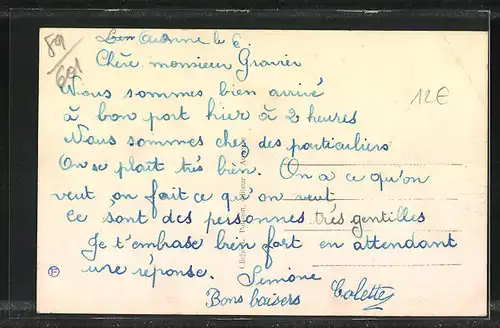 89
691
Auxonne le 6.
Chère monsieur Gravier
Nous sommes bien arrivé
à bon port hier à 2 heures
12€
Nous sommes chez des particuliers
On se plait très bien. On a ce qu'on
veut, on fait ce qu'on veut
Ce sont des personnes très gentilles
Je t'embrase bien fort en attendant
une réponse. Simone
Bons baisers Colette